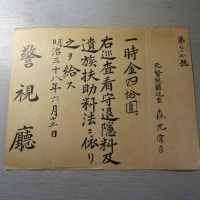 第七二號
元警視廳巡査 森光常吉
一時金四拾圓
右巡査看守退隱料及
遺族扶助料法ニ依リ
之ヲ給ス
明治三十八年六月十三日
警視廳